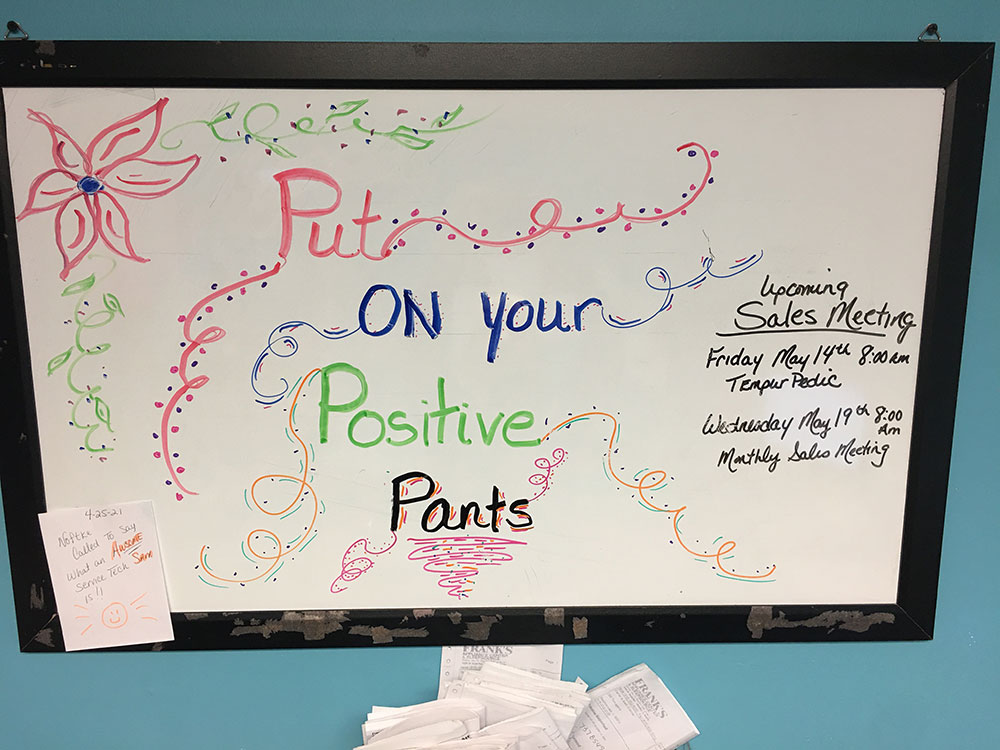 Put
ON your
Positive
Pants
Upcoming
Sales Meeting
Friday May 14th 8:00 am
Tempur Pedic
Wednesday May 19th 8:00
Am
Monthly Sales Meeting
4-25-21
Called To Say
What an Awesome
Service Tech Sam
is!!
FRANK'S
FRANK'S